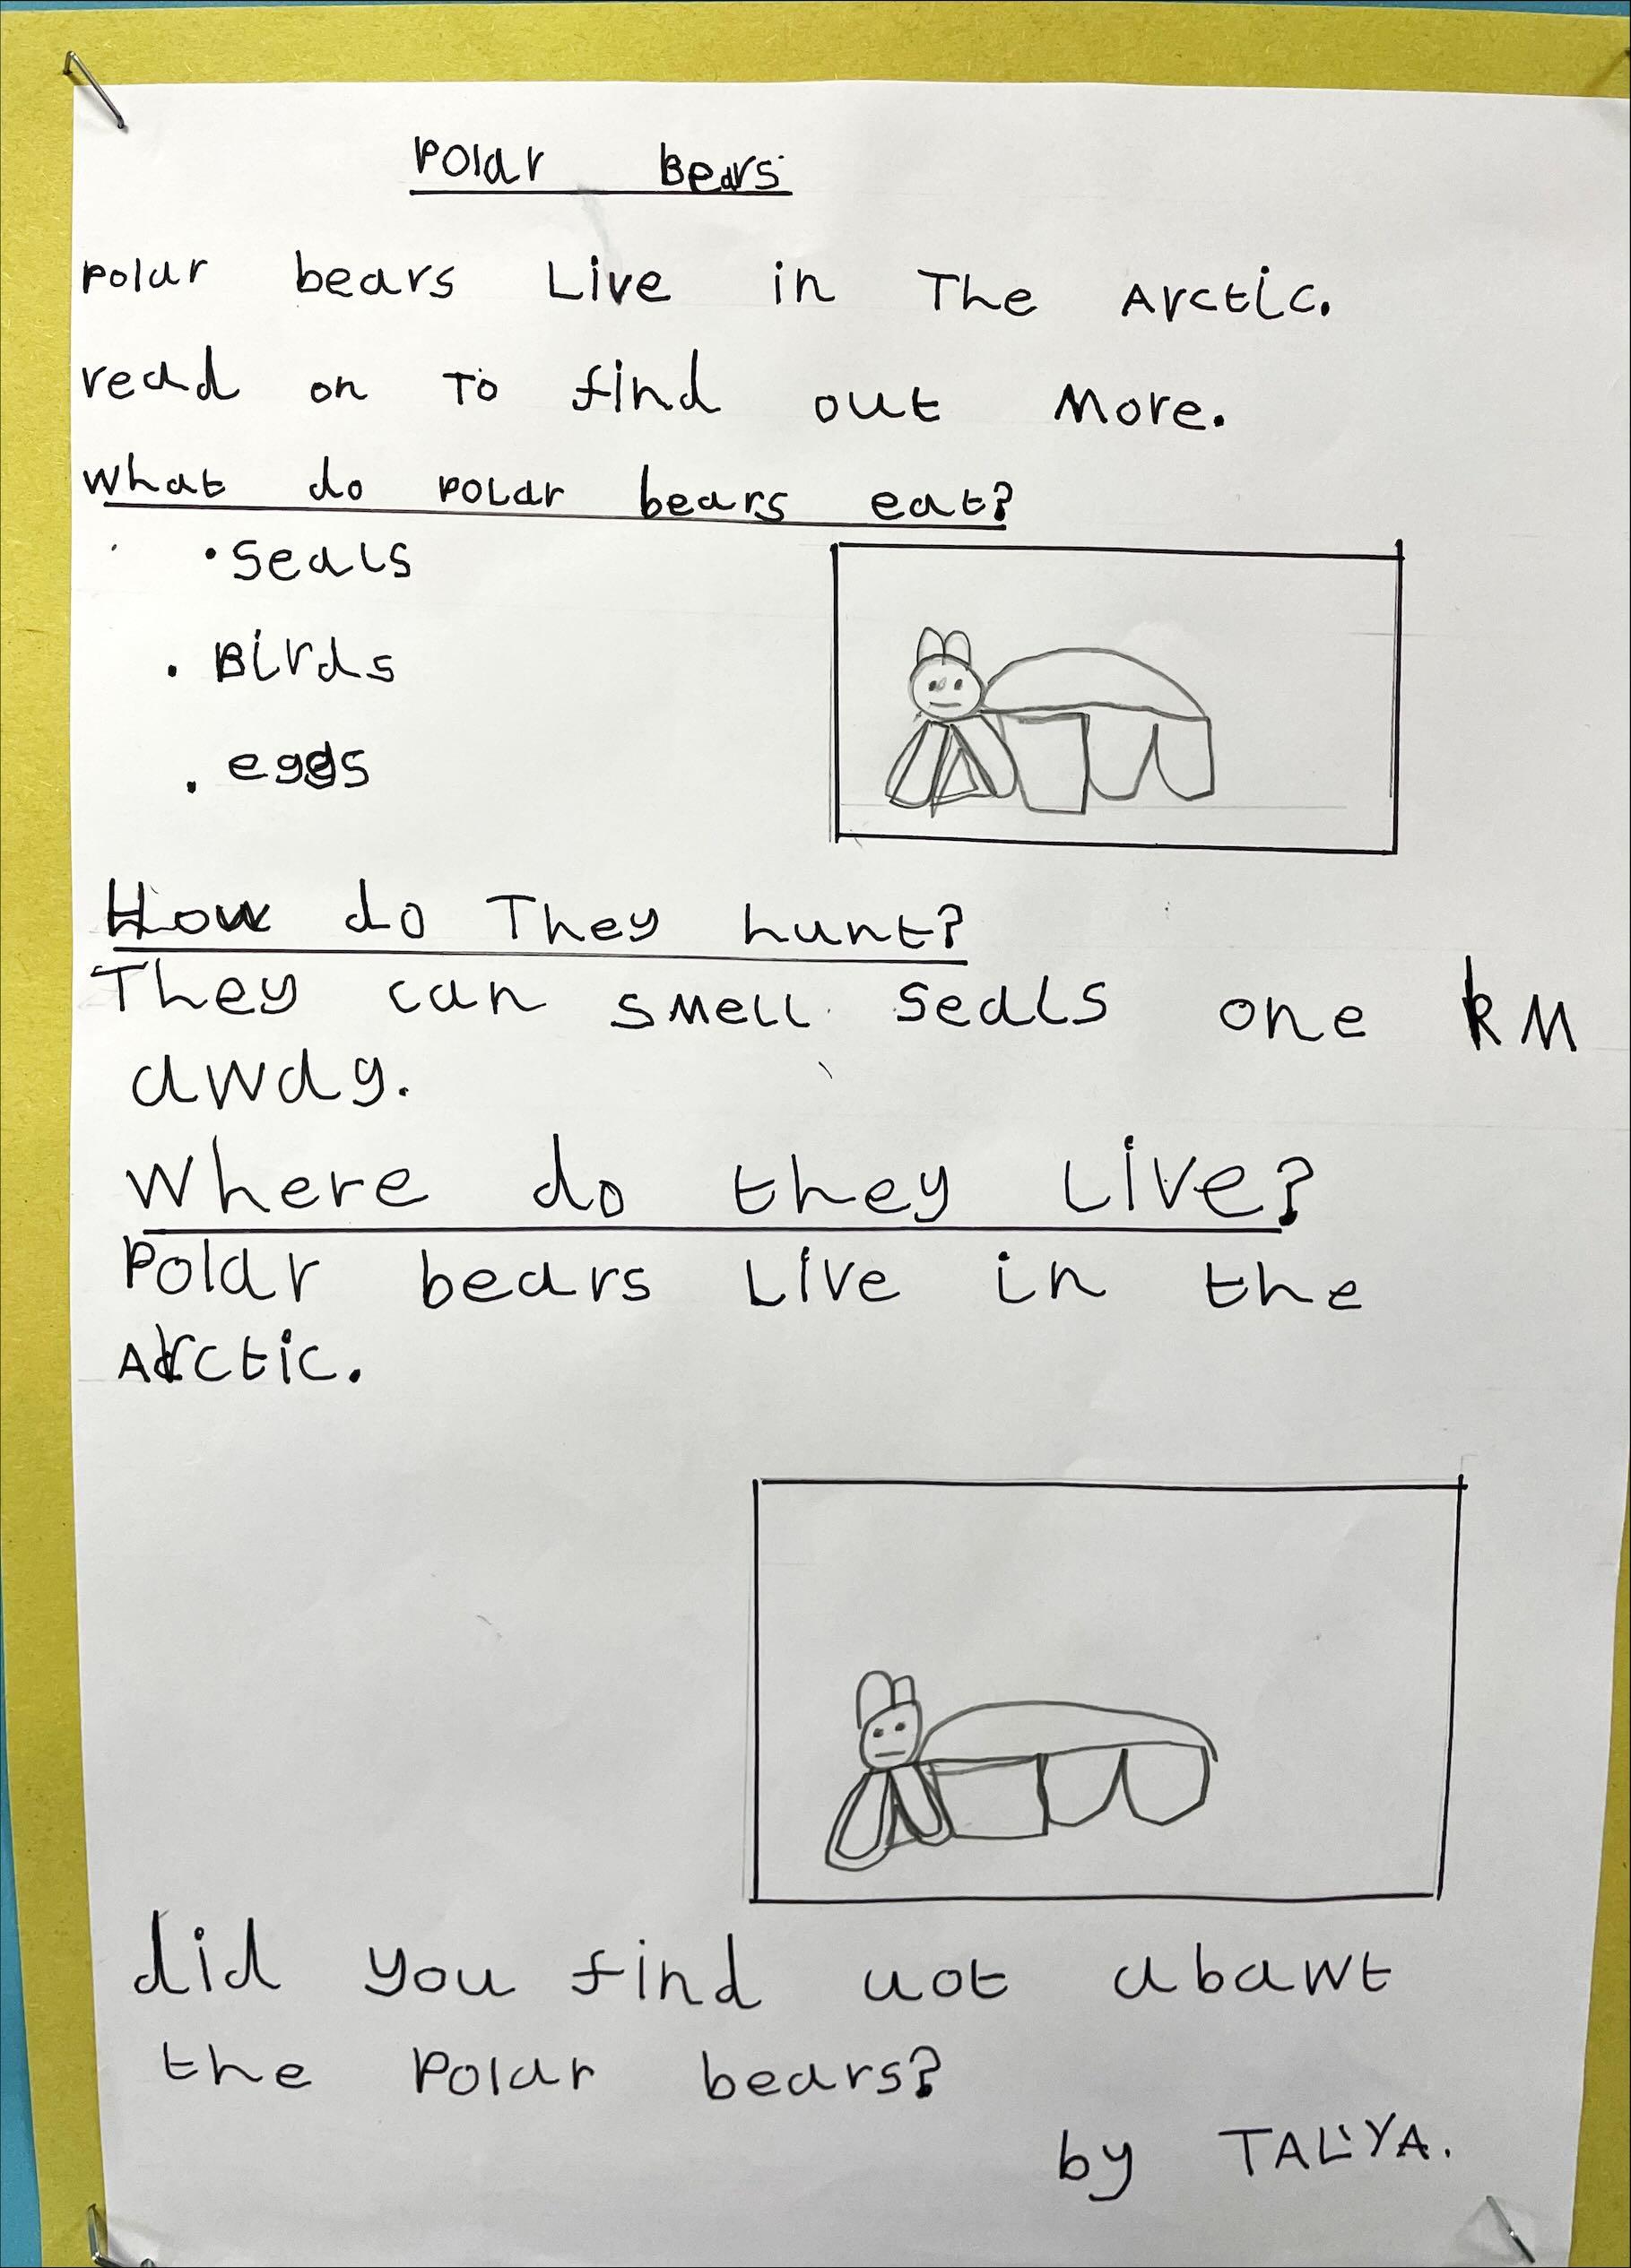 Polar Bears
Polar bears Live in The Arctic.
read on To find out More.
What do Polar bears eat?
• Seals
• Birds
• eggs
How do They hunt?
They can smell seals one kM
away.
Where do they Live?
Polar bears Live in the
Arctic.
did you find uot abawt
the Polar bears?
by TALIYA.